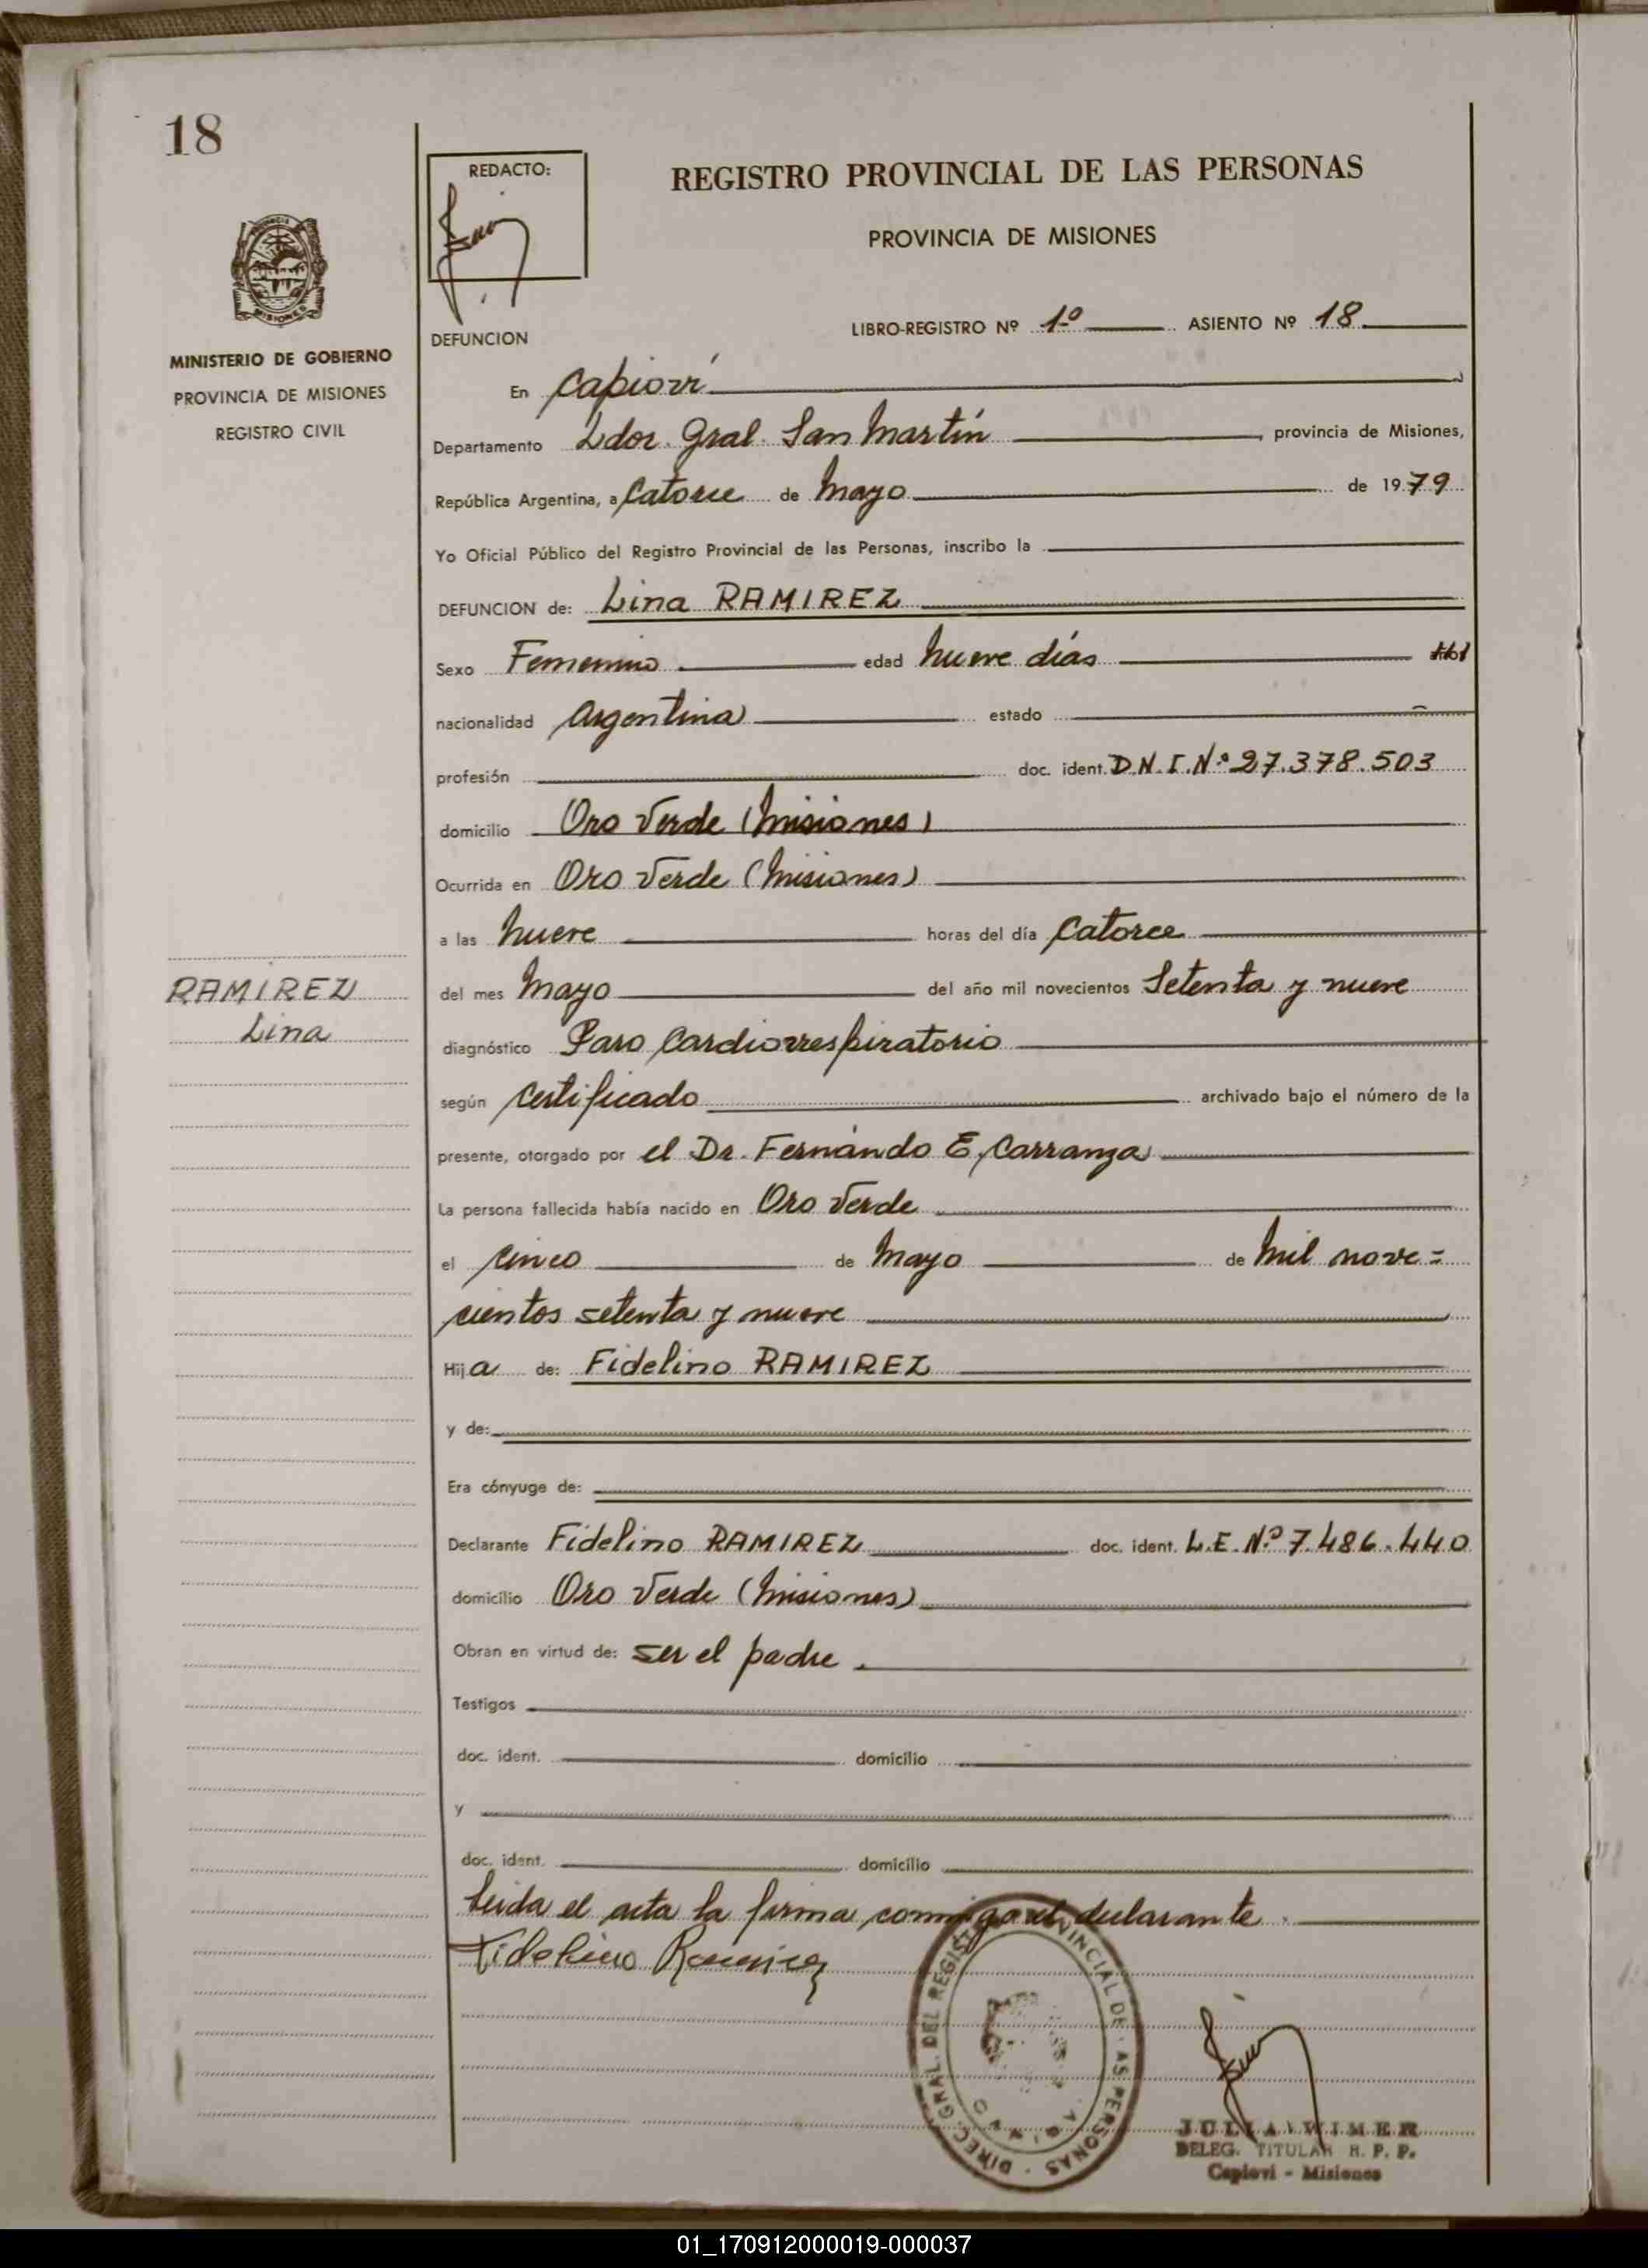 18
REDACTO:
REGISTRO PROVINCIAL DE LAS PERSONAS
PROVINCIA DE MISIONES
MISIONES
MINISTERIO DE GOBIERNO
PROVINCIA DE MISIONES
REGISTRO CIVIL
DEFUNCION
LIBRO-REGISTRO Nº 1º ASIENTO Nº 18
En Capioví
Departamento Ldor. Gral. San Martín, provincia de Misiones,
República Argentina, a Catorce de Mayo de 1979
Yo Oficial Público del Registro Provincial de las Personas, inscribo la
DEFUNCION de: Lina RAMIREZ
Sexo Femenino edad nueve días
nacionalidad Argentina estado
profesión doc. ident. D.N.I. Nº 27.378.503
domicilio Oro Verde (Misiones)
Ocurrida en Oro Verde (Misiones)
a las nueve horas del día Catorce
RAMIREZ
Lina
del mes Mayo del año mil novecientos Setenta y nueve
diagnóstico Paro Cardiorrespiratorio
según Certificado archivado bajo el número de la
presente, otorgado por el Dr. Fernándo E. Carranza
La persona fallecida había nacido en Oro Verde
el cinco de Mayo de Mil nove=
cientos setenta y nueve
Hija de: Fidelino RAMIREZ
y de:
Era cónyuge de:
Declarante Fidelino RAMIREZ doc. ident. L.E. Nº 7.486.440
domicilio Oro Verde (Misiones)
Obran en virtud de: ser el padre.
Testigos
doc. ident. domicilio
y
doc. ident. domicilio
Leida el acta la firma conmigo el declarante.
Fidelino Ramirez
DIREC. GRAL. DEL REGISTRO PROVINCIAL DE LAS PERSONAS
JULIA WIMER
DELEG. TITULAR R. P. P.
Capioví - Misiones
01_170912000019-000037